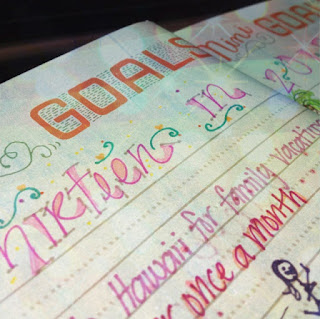 GOALS GOALS
hirteen in 20
Hawaii for family vacation
once a month